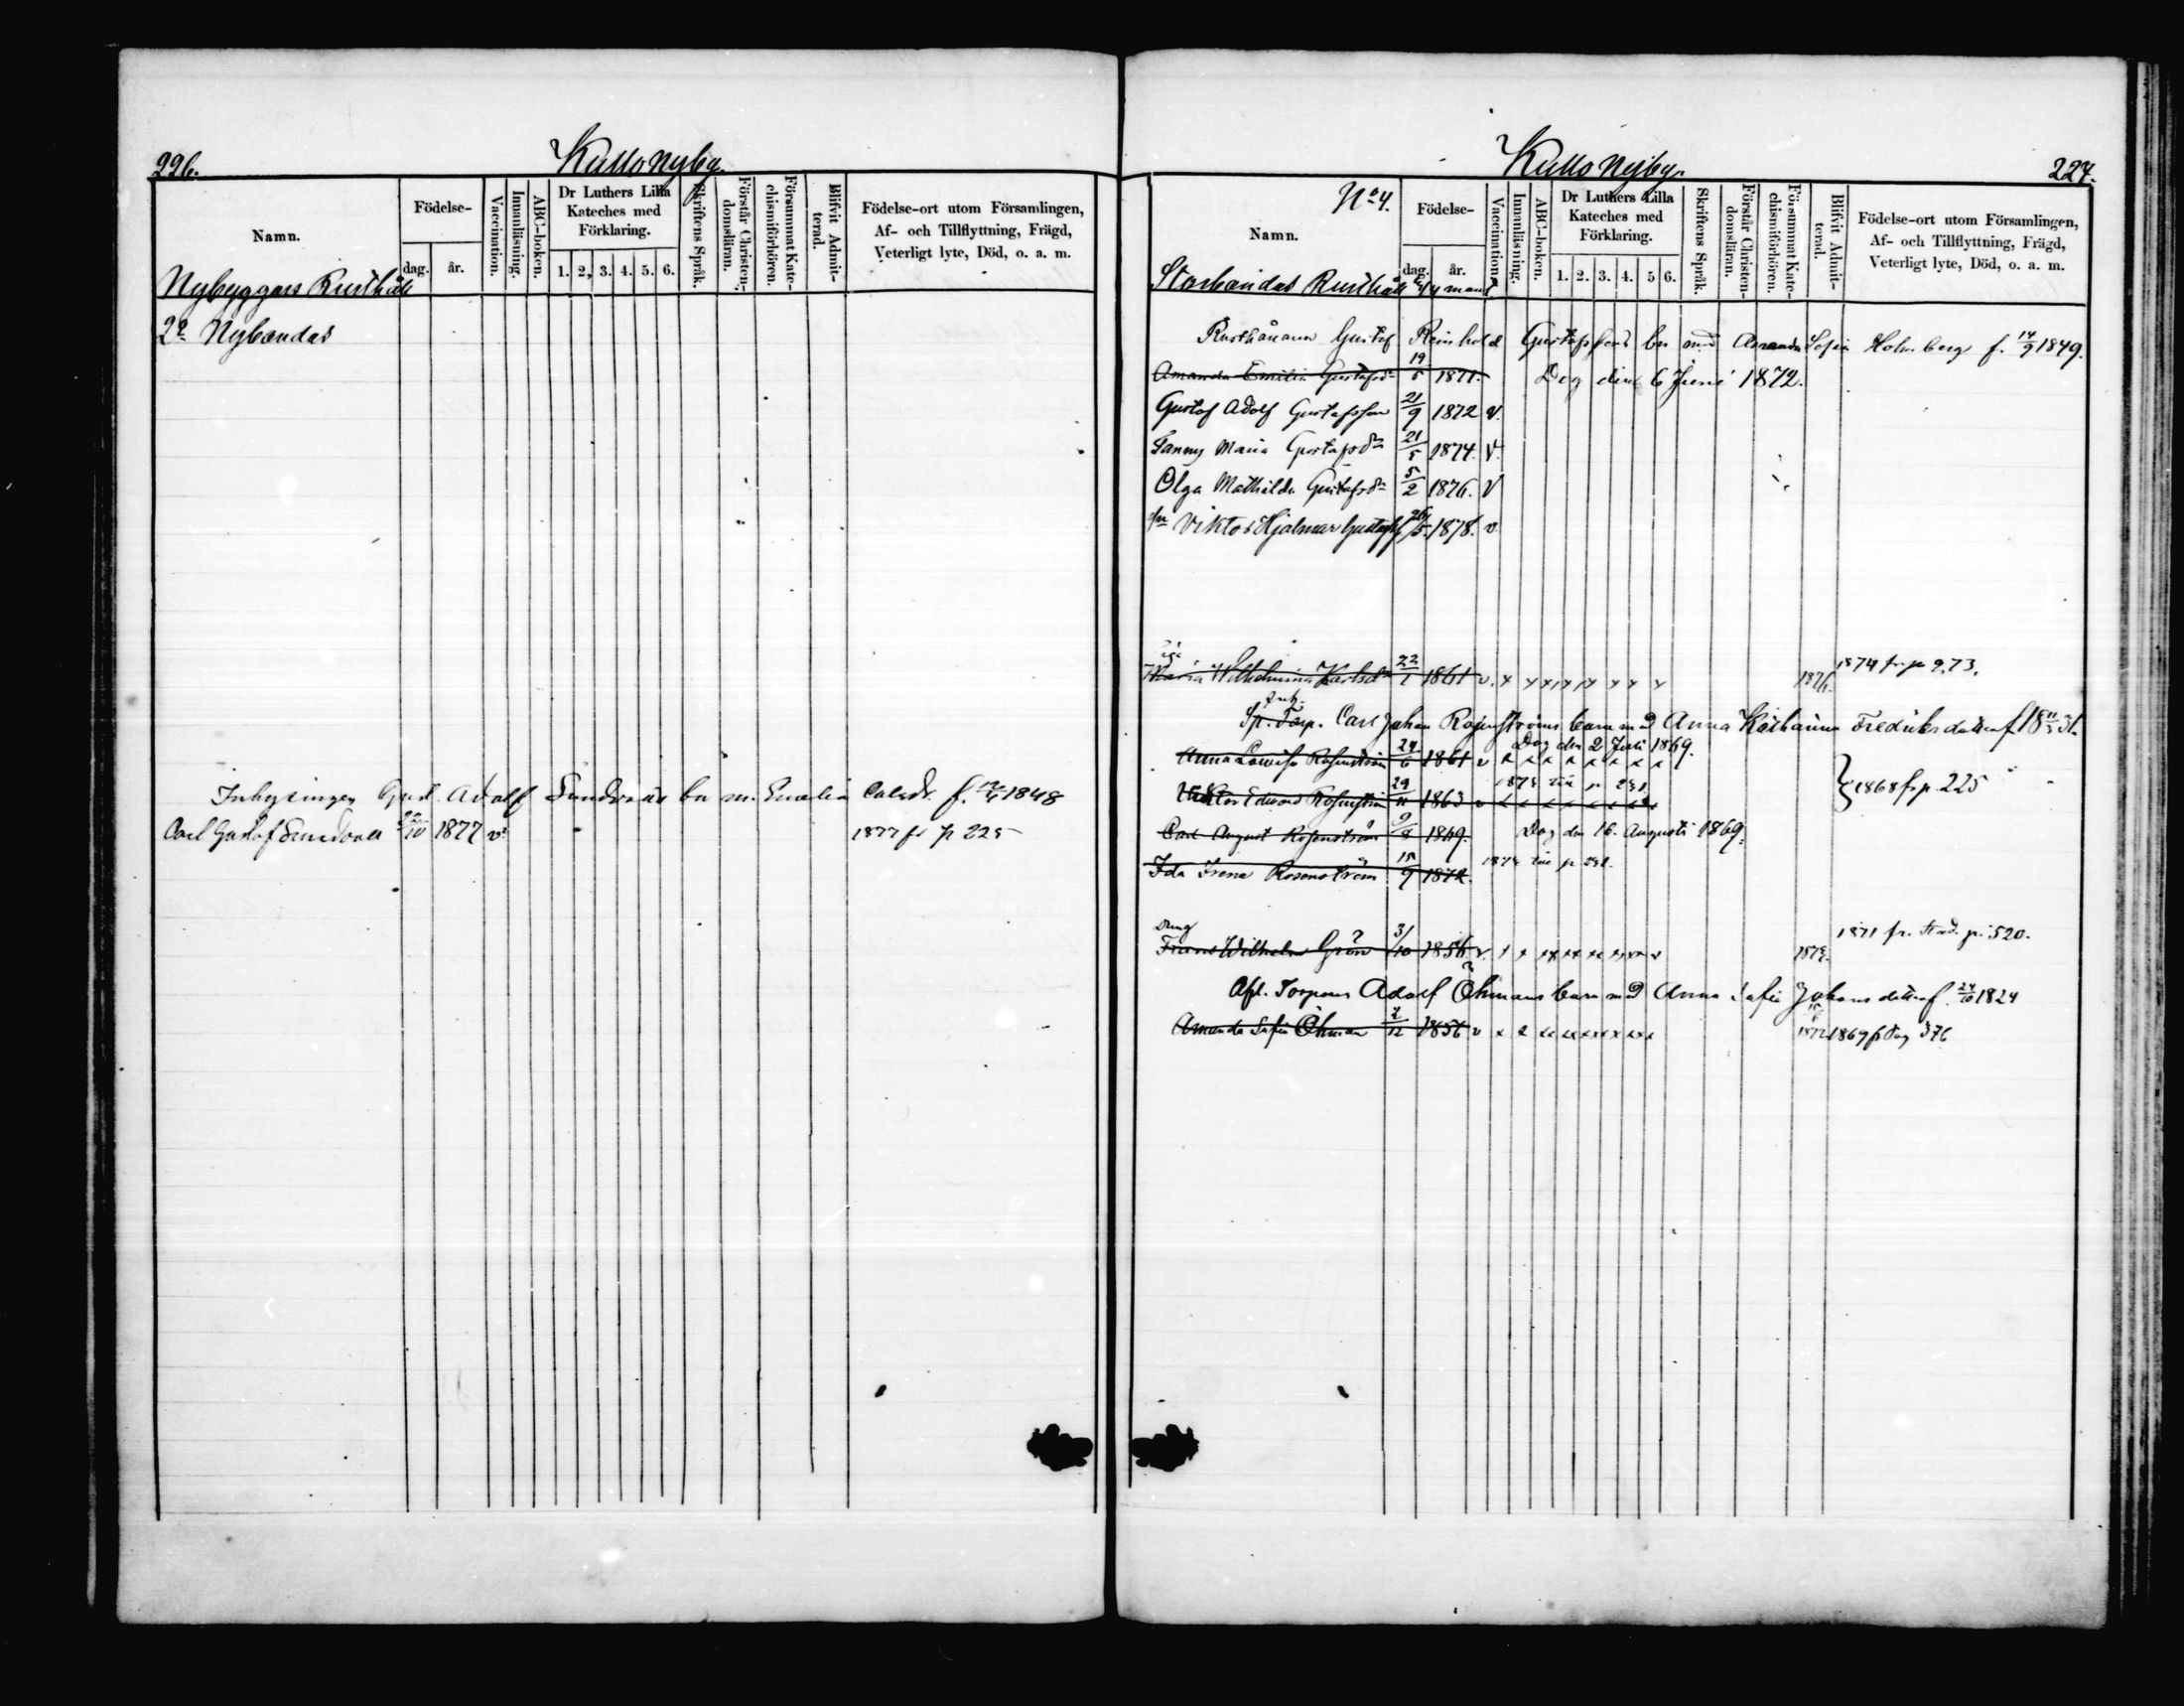 226.
Kullo Nyby.
Namn.
Födelse-
dag.
år.
Vaccination.
Innanläsning.
ABC-boken.
Dr Luthers Lilla
Kateches med
Förklaring.
1. 2. 3. 4. 5. 6.
Skriftens Språk.
Förstår Christen-
domsläran.
Försummat Kate-
chismiförhören.
Blifvit Admit-
terad.
Födelse-ort utom Församlingen,
Af- och Tillflyttning, Frägd,
Veterligt lyte, Död, o. a. m.
Nybyggars Rusthåll
Nybondas
Inhysingen Gust. Adolf Sundvall bn m. Emelia Calsdr. f. 1848
Carl Gustaf Sundvall /10 1877 v 1877 fr p 225
Kullo Nyby.
227.
No 4.
Namn.
Födelse-
dag.
år.
Vaccination.
Innanläsning.
ABC-boken.
Dr Luthers Lilla
Kateches med
Förklaring.
1. 2. 3. 4. 5 6.
Skriftens Språk.
Förstår Christen-
domsläran.
Försummat Kate-
chismiförhören.
Blifvit Admit-
terad.
Födelse-ort utom Församlingen,
Af- och Tillflyttning, Frägd,
Veterligt lyte, Död, o. a. m.
Storbondas Rusthåll mant.
Rusthållaren Gustaf Reinhold Gustafssons bn med Amanda Sofia Holmberg f. 14/9 1849.
Amanda Emilia Gustafsdr 19/5 1871. Dog den 6 Juni 1872.
Gustaf Adolf Gustafsson 21/9 1872 v.
Fanny Maria Gustafsdr 21/5 1874. v.
Olga Mathilda Gustafsdr 5/2 1876. v
Viktor Hjalmar Gustafss 26/5 1878. v.
Piga
Maria Wilhelmina Karlsdr 22/1 1861 v. x x x x x x x x 1876. 1874 fr p 273.
Inh.
Sp. Torp. Carl Johan Rosenströms barn med Anna Katharina Fredriksdotter f 18 11/3 31.
Dog den 2 Juli 1869.
Anna Lowisa Rosenström 24/6 1861 v x x x x x x x x
1868 fr p. 225
1878 till p 231
Viktor Edward Rosenström 29/11 1863 v x x x x x x x x
Carl August Rosenström 9/8 1869. Dog den 16. Augusti 1869.
1878 till p 231.
Ida Irena Rosenström 15/9 1872.
Dreng
Frans Wilhelm Grön 31/10 1856 v. x x x x x x x x x 1873. 1871 fr. Stad. p. 520.
Afl. Torparen Adolf Öhmans barn med Anna Sofia Johansdotter f. 24/10 1824
Amanda Sofia Öhman 2/12 1856 v x x x x x x x x x 1872 1869 fr Pag 376